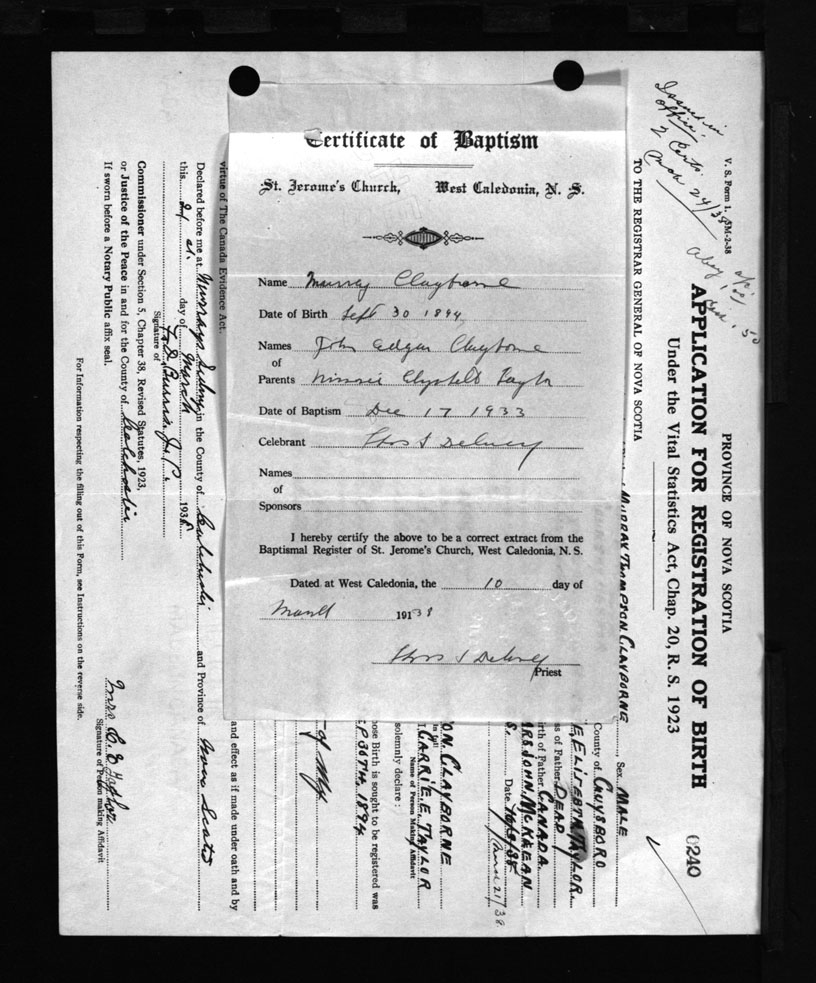 Certificate of Baptism
St. Jerome's Church, West Caledonia, N. S.
Name Murray Clayborne
Date of Birth Sept 30 1894
Names John Edgar Clayborne
of
Parents Minnie Taylor
Date of Baptism Dec 17 1933
Celebrant Thos S
Names
of
Sponsors
I hereby certify the above to be a correct extract from the
Baptismal Register of St. Jerome's Church, West Caledonia, N. S.
Dated at West Caledonia, the 10 day of
March 19138
Thos S
Priest
V. S. Form 1. 5M-2-38
Issued in
office
2 Certs.
March 24/38
PROVINCE OF NOVA SCOTIA
APPLICATION FOR REGISTRATION OF BIRTH
Under the Vital Statistics Act, Chap. 20, R. S. 1923
0240
TO THE REGISTRAR GENERAL OF NOVA SCOTIA
MURRAY THOMPSON CLAYBORNE Sex MALE
County of GUYSBORO
E, ELISEBTH TAYLOR.
s of Father DEAD
irth of Father CANADA
MRS JOHN MCKEEAN
S. Date
March 21/38
ON. CLAYBORNE
in full
I, CARRIE. E. TAYLOR
Name of Person Making Affidavit
solemnly declare:
ose Birth is sought to be registered was
EP 30TH. 1894
of my
and effect as if made under oath and by
virtue of The Canada Evidence Act.
Declared before me at Murrays Siding in the County of Colchester and Province of Nova Scotia
this 21 st. day of March 1938
Signature of
Commissioner under Section 5, Chapter 38, Revised Statutes, 1923,
or Justice of the Peace in and for the County of Colchester
If sworn before a Notary Public affix seal.
Mrs C. E Taylor
Signature of Person making Affidavit
For Information respecting the filling out of this Form, see Instructions on the reverse side.